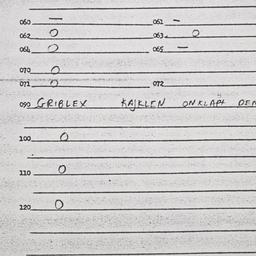 060 — 061 —
062 O 063. O
064 O 065 —
070 O
071 O 072
090 GRIBLEX KAJKLEN ONKLAPT DEN
100 O
110 O
120 O